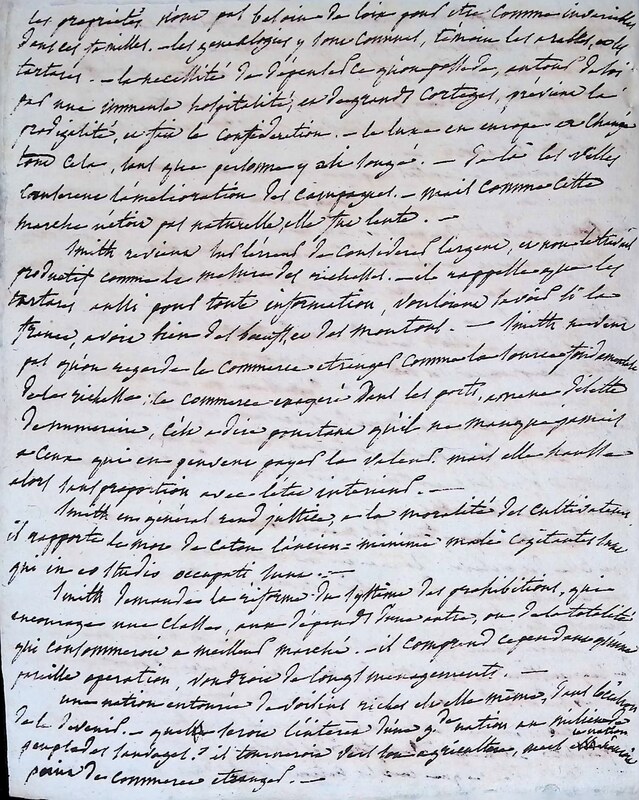 les propriétés n'ont pas besoin de loix pour etre comme invariables
dans ces familles. – les genealogies y sont connues, temoin les arabes, et les
tartares. – la necessité de dépenser ce qu'on possede, autour de soi
par une immense hospitalité, et de grands corteges, prévient la
prodigalité, et fait la consideration. – le luxe en europe a changé
tout cela, sans que personne y ait songé. – de là les villes
conferent l'amélioration des campagnes. – mais comme cette
marche n'étoit pas naturelle, elle fut lente. –
Smith revient sur l'erreur de considerer l'argent, et non le travail
productif comme la mesure des richesses. – il rappelle que les
tartares aussi pour toute information, vouloient savoir si la
france, avoit bien des boeufs et des moutons. – Smith ne veut
pas qu'on regarde le commerce etranger comme la source fondamentale
de la richesse; ce commerce exageré dans les ports, amene disette
de numeraire, c'est a dire pourtant qu'il ne manque jamais
a ceux qui en peuvent payer la valeur. mais elle hausse
alors sans proportion avec l'état interieur. –
Smith en général rend justice, a la moralité des cultivateurs
il rapporte le mot de caton l'ancien = minimè malè cogitantes sunt
qui in eo studio occupati sunt. –
Smith demande la reforme du système des prohibitions, qui
encourage une classe, aux dépends d'une autre, ou de la totalité
qui consommeroit a meilleur marché. – il comprend cependant qu'une
pareille operation, voudroit de longs menagements. –
une nation entourée de voisins riches est elle même, dans le cas
de le devenir. – quel seroit l'intérêt d'une gde nation au milieu de
peuples sauvages? il tourneroit vers son agriculture, mais la nation n'auroit
point de commerce etranger. –